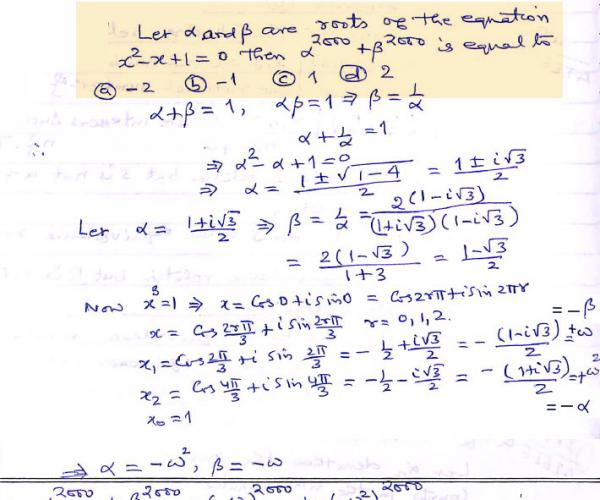 Let α and β are roots of the equation
x²-x+1=0 then α²⁰⁰⁰+β²⁰⁰⁰ is equal to
ⓐ -2 ⓑ -1 ⓒ 1 ⓓ 2
α+β=1, αβ=1 ⇒ β=1/α
∴ α+1/α=1
⇒ α²-α+1=0
⇒ α = (1±√(1-4))/2 = (1±i√3)/2
Let α = (1+i√3)/2 ⇒ β = 1/α = 2(1-i√3)/((1+i√3)(1-i√3))
= 2(1-√3)/(1+3) = (1-√3)/2
Now x³=1 ⇒ x = Cos0+i Sin0 = Cos2rπ+i Sin2πr
x = Cos 2rπ/3 + i Sin 2rπ/3 r=0,1,2. =-β
x₁ = Cos 2π/3 + i Sin 2π/3 = -1/2 + i√3/2 = -((1-i√3)/2) =+ω
x₂ = Cos 4π/3 + i Sin 4π/3 = -1/2 - i√3/2 = -((1+i√3)/2) =+ω²
x₀=1 =-α
⇒ α=-ω², β=-ω